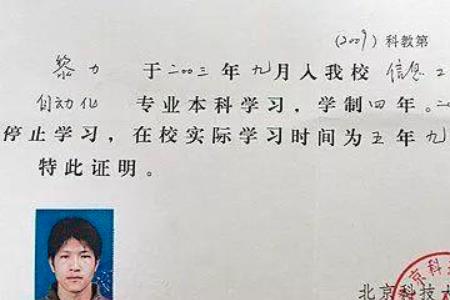 (2009) 科教第
黎力 于二〇〇三年九月入我校 信息工
自动化 专业本科学习,学制四年。二
停止学习,在校实际学习时间为五年九
特此证明。
北京科技大
北京科